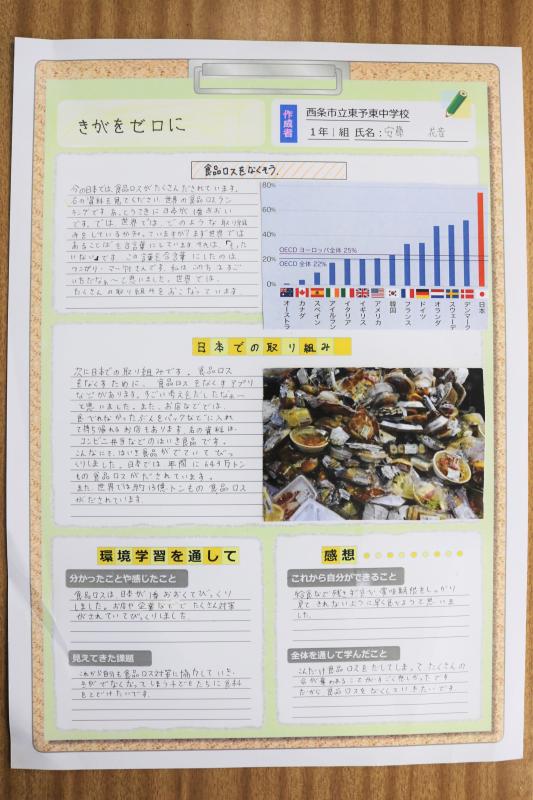 きがをゼロに
作成者
西条市立東予東中学校
1年1組 氏名：安藤
食品ロスをなくそう。
今の日本では、食品ロスがたくさんだされています。
右の資料を見てください。世界の食品ロスラン
キングです。
です。では、世界では、どのような取り組
みをしているか
あることばを合言葉にしています。それは、「もった
いない」です。この言葉を合言葉にしたのは、
ワンガリ・マータイさんです。私は
と思いました。世界では、
たくさんの取り組みをおこなっています
80%
60%
40%
20%
0%
OECD ヨーロッパ全体 25%
OECD 全体 22%
オーストラ
カナダ
スペイン
アイルラン
イタリア
イギリス
アメリカ
韓国
フランス
ドイツ
オランダ
スウェーデ
デンマーク
日本
日本での取り組み
次に日本での取り組みです。食品ロス
をなくすために、食品ロスをなくすアプリ
などがあります。すごい考えをだしたなぁ〜
と思いました。また、お店などでは、
食べれなかったぶんをパックなどに入れ
て持ち帰れるお店もあります。右の資料は、
コンビニ弁当などのはいき食品です。
こんなにも、はいき食品がでていてびっ
くりしました。日本では年間に
もの食品ロスがだされています。
また、世界では約13億トンもの食品ロス
がだされています。
環境学習を通して
分かったことや感じたこと
食品ロスは日本が1番おおくてびっくり
しました。お店や企業などでたくさん対策
がされていてびっくりしました。
見えてきた課題
これから自分も食品ロス対策に協力していき、
きがでなくなってしまう子どもたちに食料
をとどけたいです。
感想
これから自分ができること
給食など残さず食べ賞味期限をしっかり
見てきれないように早く食べようと思いま
した。
全体を通して学んだこと
こんだけ食品ロスをだしてしまってたくさんの
命が奪われることがすごく悲しかったです
だから食品ロスをなくしていきたいです